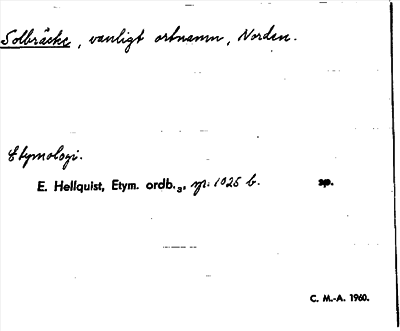 Solbräcke, vanligt ortnamn, Norden.
Etymologi.
E. Hellquist, Etym. ordb.3, sp. 1025 b.
C. M.-A. 1960.